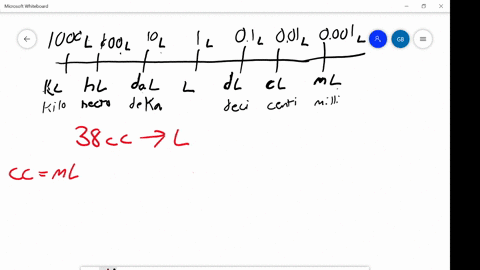 Microsoft Whiteboard
GB
1000L 100L 10L 1L 0.1L 0.01L 0.001L
KL hL daL L dL cL mL
Kilo hecto deka deci centi milli
38cc → L
cc = mL